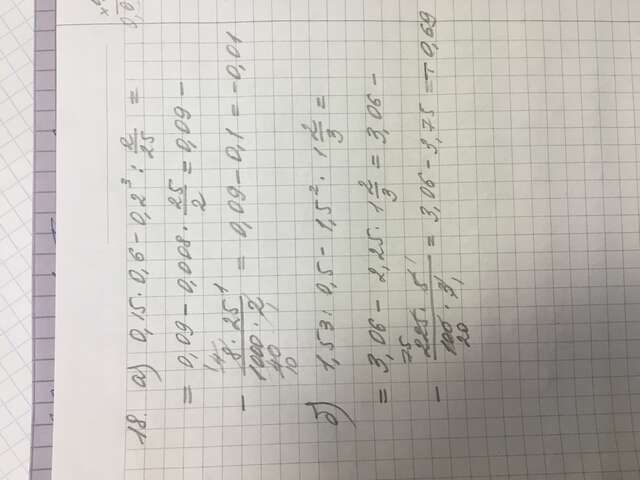 18. а) 0,15 · 0,6 - 0,2³ : 2/25 =
= 0,09 - 0,008 · 25/2 = 0,09 -
- 8 · 25 / 1000 · 2 = 0,09 - 0,1 = -0,01
б) 1,53 : 0,5 - 1,5² · 1 2/3 =
= 3,06 - 2,25 · 1 2/3 = 3,06 -
- 225 · 5 / 100 · 3 = 3,06 - 3,75 = -0,69